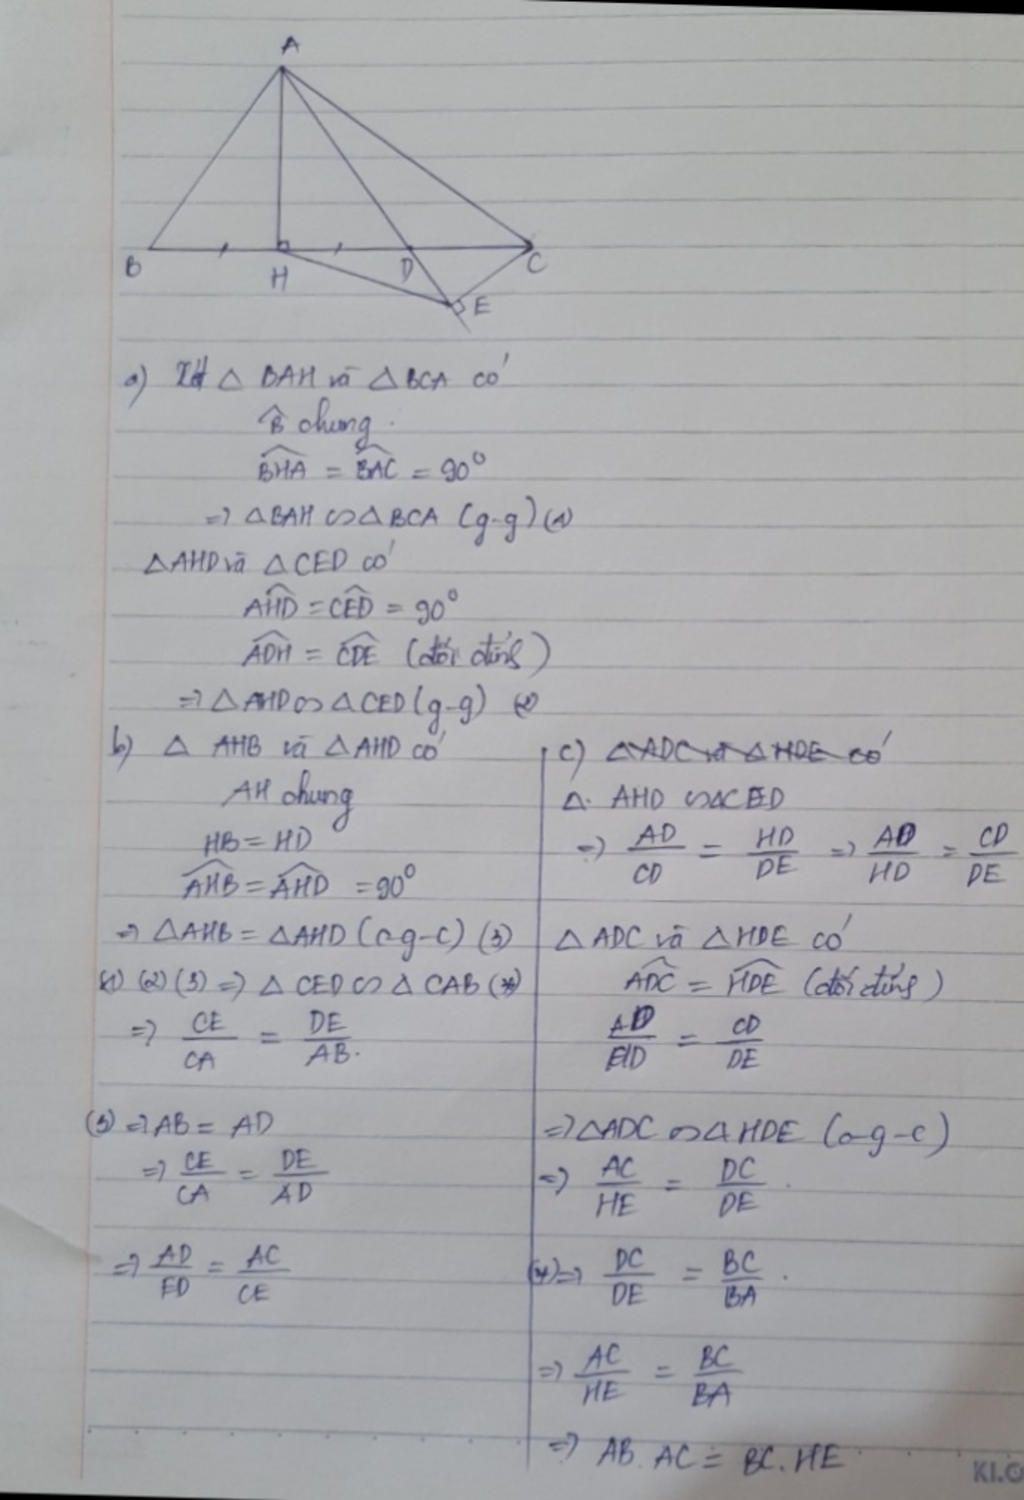 A
B
H
D
C
E
a) Xét △ BAH và △ BCA có
B̂ chung.
BHA = BAC = 90°
=> △BAH ∽ △BCA (g-g) (1)
△AHD và △CED có
AHD = CED = 90°
ADH = CDE (đối đỉnh)
=> △AHD ∽ △CED (g-g) (2)
b) △ AHB và △AHD có
AH chung
HB = HD
AHB = AHD = 90°
=> △AHB = △AHD (c-g-c) (3)
(1) (2) (3) => △ CED ∽ △ CAB (*)
=> CE/CA = DE/AB.
(3) => AB = AD
=> CE/CA = DE/AD
=> AD/ED = AC/CE
c) △ADC và △HDE có
△. AHD ∽ △CED
=> AD/CD = HD/DE => AD/HD = CD/DE
△ADC và △HDE có
ADC = HDE (đối đỉnh)
AD/HD = CD/DE
=> △ADC ∽ △HDE (c-g-c)
=> AC/HE = DC/DE.
(*) => DC/DE = BC/BA.
=> AC/HE = BC/BA
=> AB.AC = BC.HE